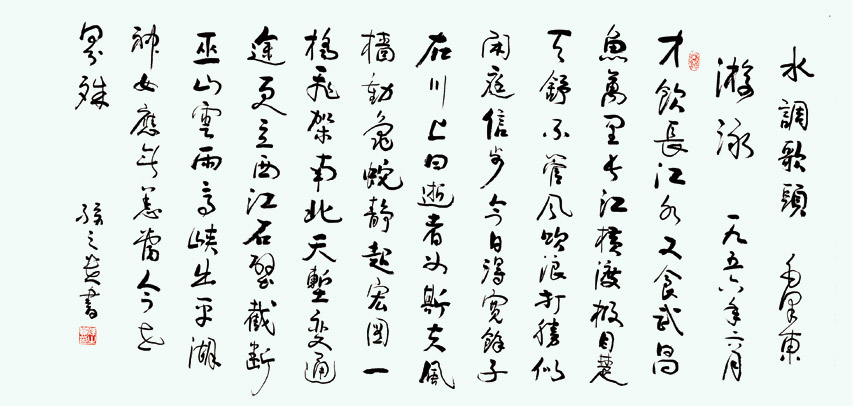 水調歌頭 毛澤東
游泳 一九五六年六月
才飲長江水又食武昌
魚萬里長江橫渡極目楚
天舒不管風吹浪打勝似
閑庭信步今日得寬餘子
在川上曰逝者如斯夫風
檣動龜蛇靜起宏圖一
橋飛架南北天塹變通
途更立西江石壁截斷
巫山雲雨高峽出平湖
神女應無恙當今世
界殊 書